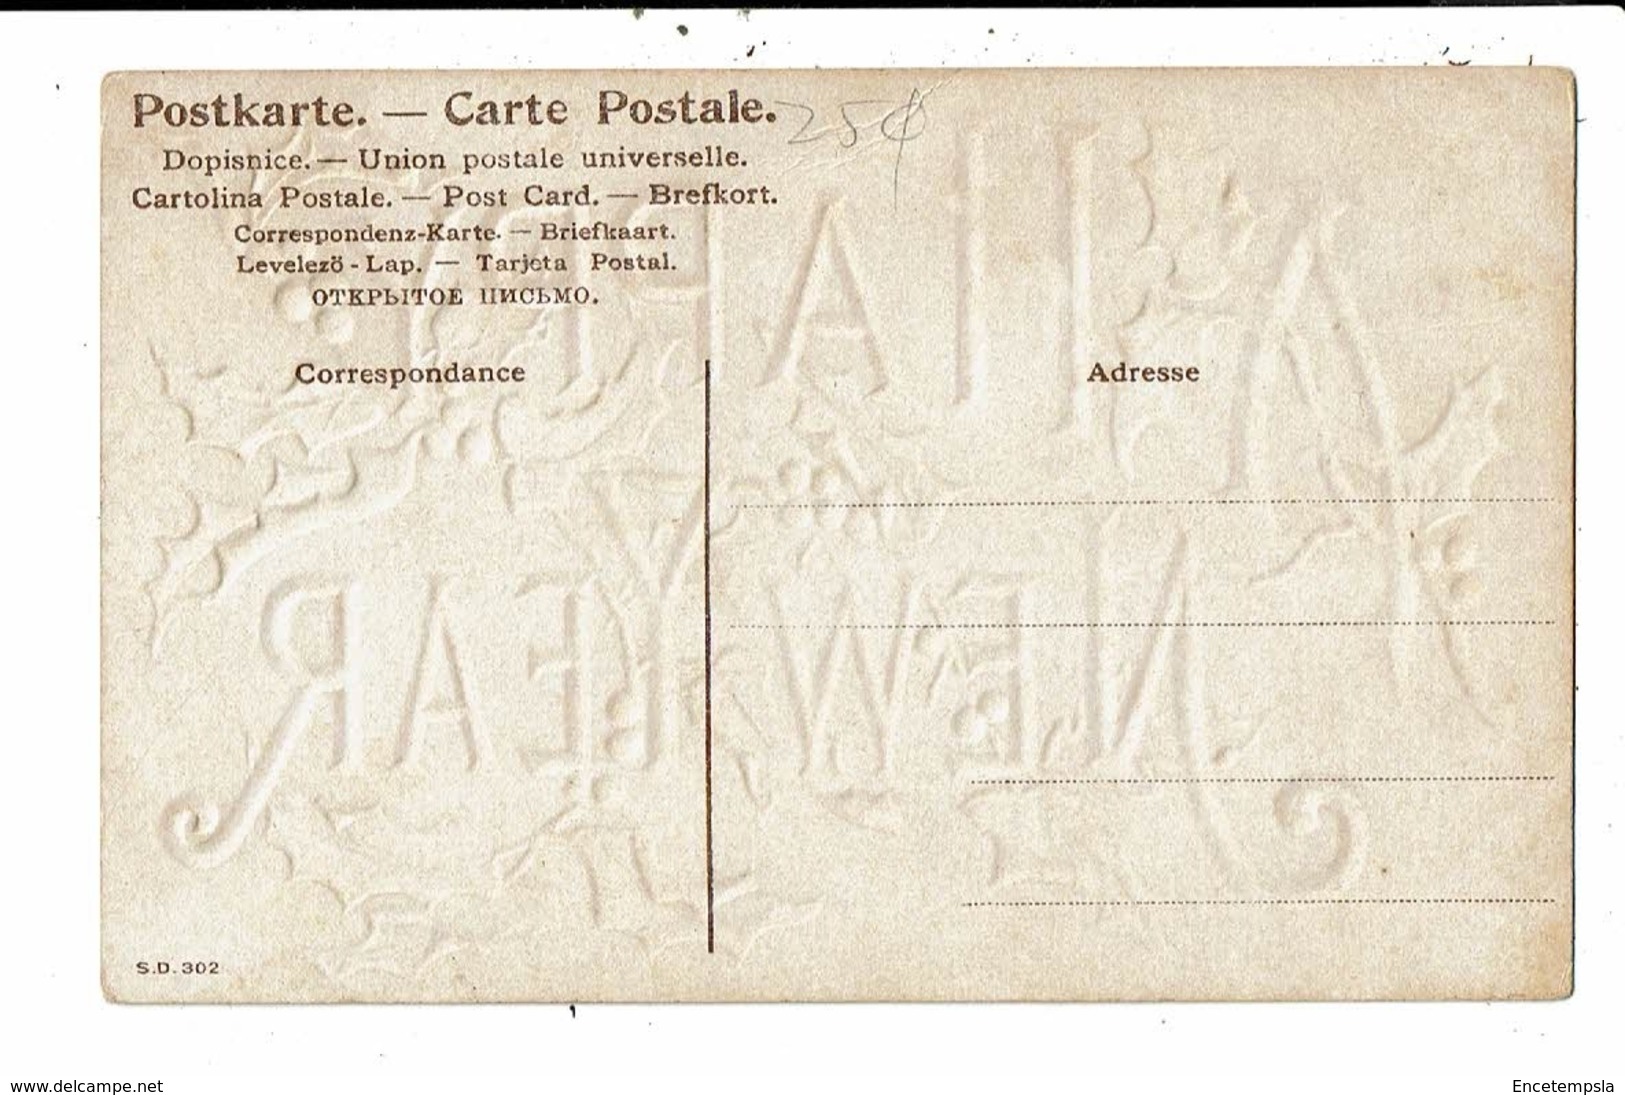 Postkarte. — Carte Postale. 25¢
Dopisnice. — Union postale universelle.
Cartolina Postale. — Post Card. — Brefkort.
Correspondenz-Karte. — Briefkaart.
Levelező - Lap. — Tarjeta Postal.
ОТКРЫТОЕ ПИСЬМО.
Correspondance
Adresse
HAPPY
NEW YEAR
S.D. 302
www.delcampe.net
Encetempsla